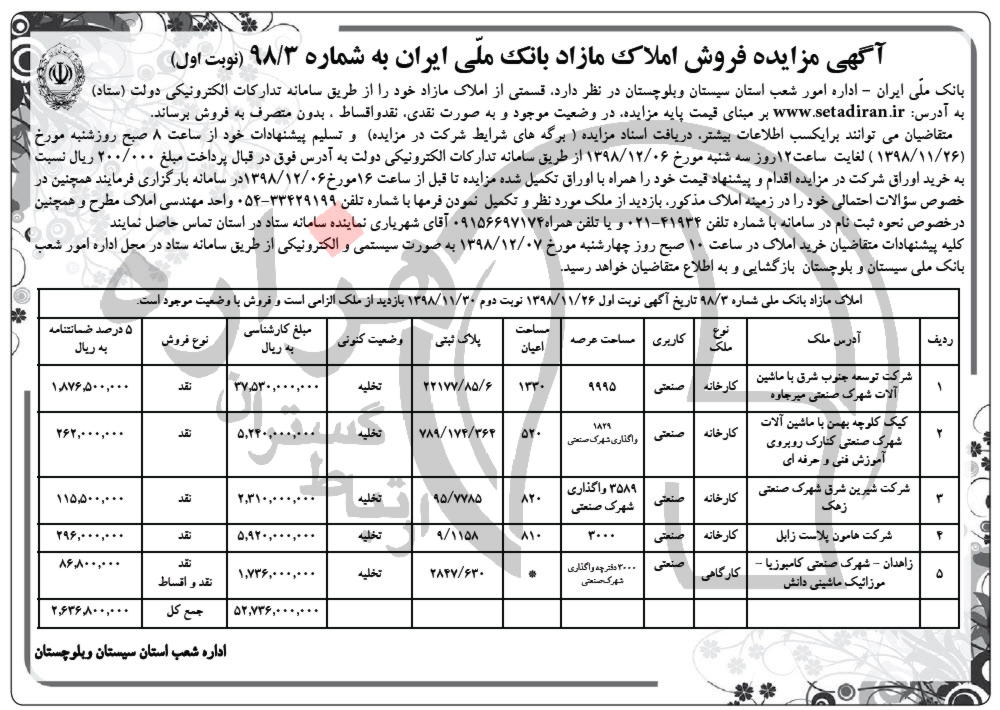 آگهی مزایده فروش املاک مازاد بانک ملّی ایران به شماره ۹۸/۳ (نوبت اول)
بانک ملّی ایران - اداره امور شعب استان سیستان وبلوچستان در نظر دارد، قسمتی از املاک مازاد خود را از طریق سامانه تدارکات الکترونیکی دولت (ستاد)
به آدرس: www.setadiran.ir بر مبنای قیمت پایه مزایده، در وضعیت موجود و به صورت نقدی، نقدواقساط ، بدون متصرف به فروش برساند.
متقاضیان می توانند برایکسب اطلاعات بیشتر، دریافت اسناد مزایده ( برگه های شرایط شرکت در مزایده) و تسلیم پیشنهادات خود از ساعت ۸ صبح روزشنبه مورخ
(۱۳۹۸/۱۱/۲۶ ) لغایت ساعت۱۲روز سه شنبه مورخ ۱۳۹۸/۱۲/۰۶ از طریق سامانه تدارکات الکترونیکی دولت به آدرس فوق در قبال پرداخت مبلغ ۲۰۰/۰۰۰ ریال نسبت
به خرید اوراق شرکت در مزایده اقدام و پیشنهاد قیمت خود را همراه با اوراق تکمیل شده مزایده تا قبل از ساعت ۱۶مورخ۱۳۹۸/۱۲/۰۶در سامانه بارگزاری فرمایند همچنین در
خصوص سؤالات احتمالی خود را در زمینه املاک مذکور، بازدید از ملک مورد نظر و تکمیل نمودن فرمها با شماره تلفن ۳۳۴۲۹۱۹۹-۰۵۴ واحد مهندسی املاک مطرح و همچنین
درخصوص نحوه ثبت نام در سامانه با شماره تلفن ۴۱۹۳۴-۰۲۱ و یا تلفن همراه۰۹۱۵۶۶۹۷۱۷۴ آقای شهریاری نماینده سامانه ستاد در استان تماس حاصل نمایند
کلیه پیشنهادات متقاضیان خرید املاک در ساعت ۱۰ صبح روز چهارشنبه مورخ ۱۳۹۸/۱۲/۰۷ به صورت سیستمی و الکترونیکی از طریق سامانه ستاد در محل اداره امور شعب
بانک ملی سیستان و بلوچستان بازگشایی و به اطلاع متقاضیان خواهد رسید.
املاک مازاد بانک ملی شماره ۹۸/۳ تاریخ آگهی نوبت اول ۱۳۹۸/۱۱/۲۶ نوبت دوم ۱۳۹۸/۱۱/۳۰ بازدید از ملک الزامی است و فروش با وضعیت موجود است.
ردیف آدرس ملک نوع ملک کاربری مساحت عرصه مساحت اعیان پلاک ثبتی وضعیت کنونی مبلغ کارشناسی به ریال نوع فروش ۵ درصد ضمانتنامه به ریال
۱ شرکت توسعه جنوب شرق با ماشین آلات شهرک صنعتی میرجاوه کارخانه صنعتی ۹۹۹۵ ۱۳۳۰ ۲۲۱۷۷/۸۵/۶ تخلیه ۳۷,۵۳۰,۰۰۰,۰۰۰ نقد ۱,۸۷۶,۵۰۰,۰۰۰
۲ کیک کلوچه بهمن با ماشین آلات شهرک صنعتی کنارک روبروی آموزش فنی و حرفه ای کارخانه صنعتی ۱۸۲۹ واگذاری شهرک صنعتی ۵۲۰ ۷۸۹/۱۷۴/۳۶۴ تخلیه ۵,۲۴۰,۰۰۰,۰۰۰ نقد ۲۶۲,۰۰۰,۰۰۰
۳ شرکت شیرین شرق شهرک صنعتی زهک کارخانه صنعتی ۳۵۸۹ واگذاری شهرک صنعتی ۸۲۰ ۹۵/۷۷۸۵ تخلیه ۲,۳۱۰,۰۰۰,۰۰۰ نقد ۱۱۵,۵۰۰,۰۰۰
۴ شرکت هامون پلاست زابل کارخانه صنعتی ۳۰۰۰ ۸۱۰ ۹/۱۱۵۸ تخلیه ۵,۹۲۰,۰۰۰,۰۰۰ نقد ۲۹۶,۰۰۰,۰۰۰
۵ زاهدان - شهرک صنعتی کامبوزیا - موزائیک ماشینی دانش کارگاهی صنعتی ۳۰۰۰ دفترچه واگذاری شهرک صنعتی * ۲۸۴۷/۶۳۰ تخلیه ۱,۷۳۶,۰۰۰,۰۰۰ نقد نقد و اقساط ۸۶,۸۰۰,۰۰۰
۵۲,۷۳۶,۰۰۰,۰۰۰ جمع کل ۲,۶۳۶,۸۰۰,۰۰۰
اداره شعب استان سیستان وبلوچستان
هزاره
گستران
ارتباط